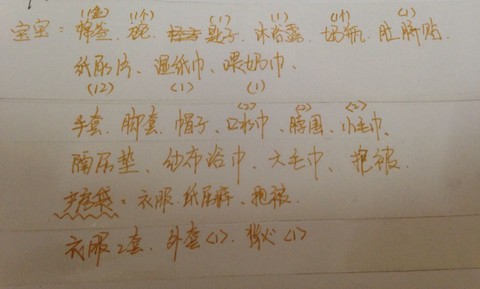 (1盒) (1个) (1) (1) (1个) (1)
宝宝: 棉签、碗、匙子、沐浴露、奶瓶、肚脐贴
纸尿片、湿纸巾、喂奶巾、
(12) (1) (1)
手套、脚套、帽子、口水巾、脖围、小毛巾、
(2) (2) (2)
隔尿垫、纱布浴巾、大毛巾、抱被
待产袋: 衣服、纸尿裤、抱被
衣服2套、外套<1>、<1>